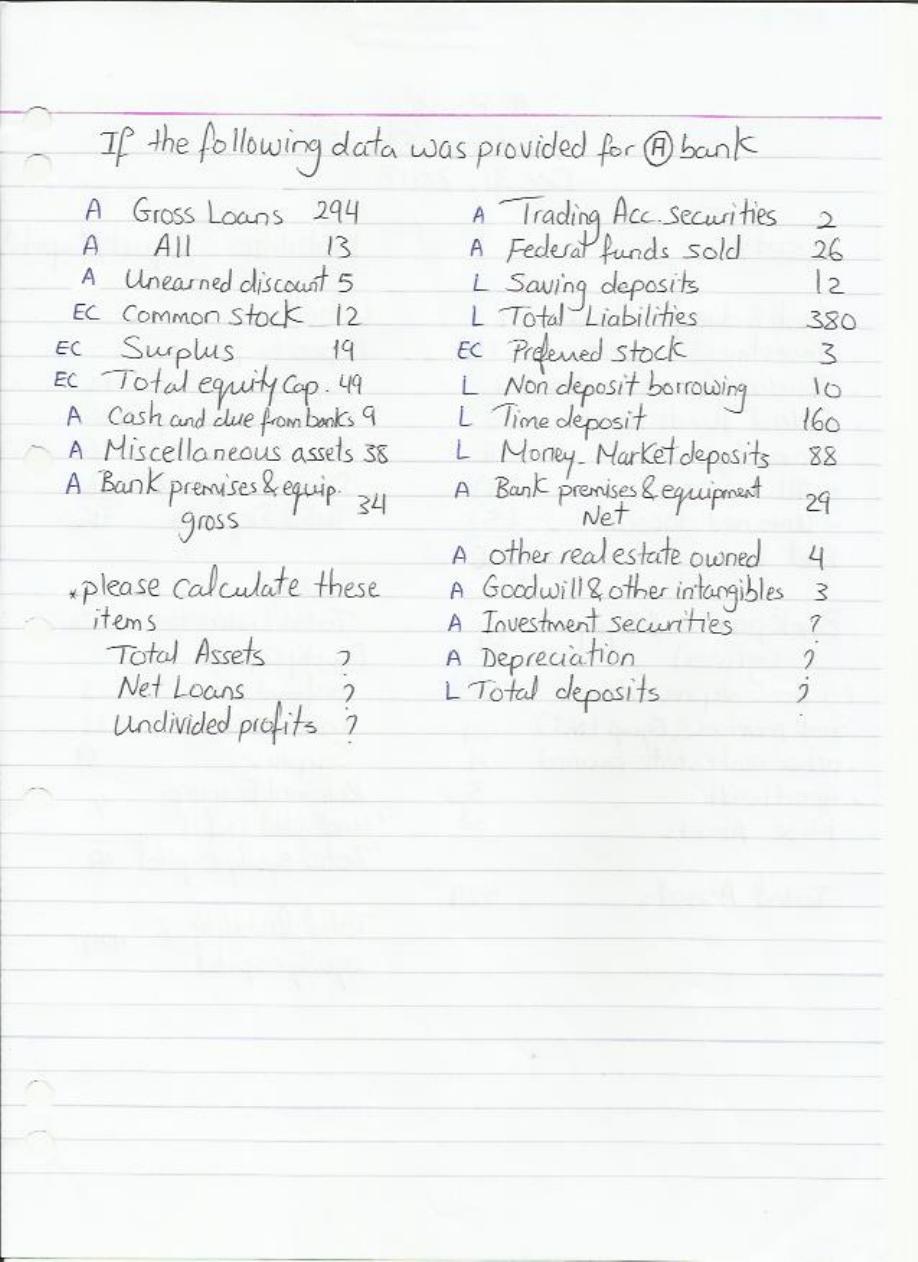 If the following data was provided for Ⓐ bank
A Gross Loans 294
A All 13
A Unearned discount 5
EC Common stock 12
EC Surplus 19
EC Total equity Cap. 49
A Cash and due from banks 9
A Miscellaneous assets 38
A Bank premises & equip. 34
gross
*please calculate these
items
Total Assets ?
Net Loans ?
Undivided profits ?
A Trading Acc. securities 2
A Federal funds sold 26
L Saving deposits 12
L Total Liabilities 380
EC Preferred stock 3
L Non deposit borrowing 10
L Time deposit 160
L Money-Market deposits 88
A Bank premises & equipment 29
Net
A other real estate owned 4
A Goodwill & other intangibles 3
A Investment securities ?
A Depreciation ?
L Total deposits ?